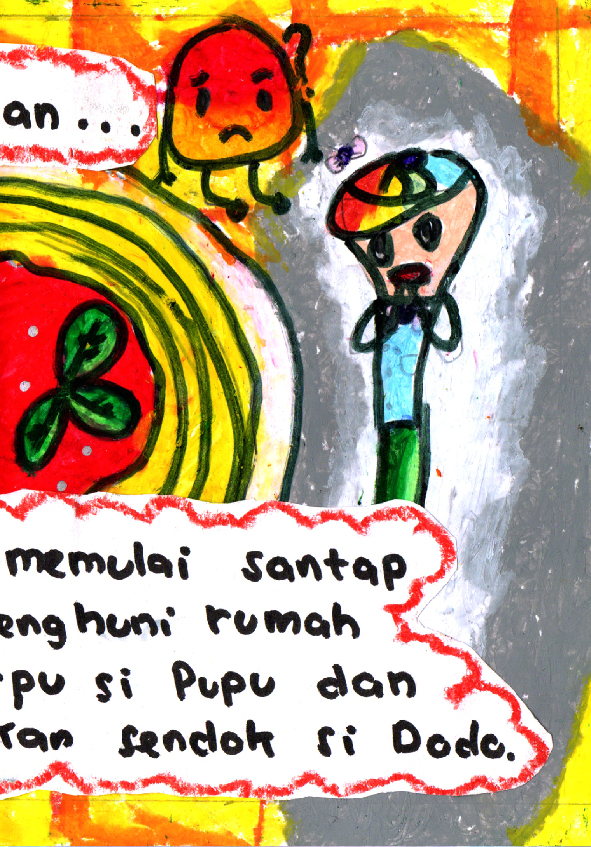 an...
memulai santap
enghuni rumah
rpu si Pupu dan
ran sendok si Dodo.